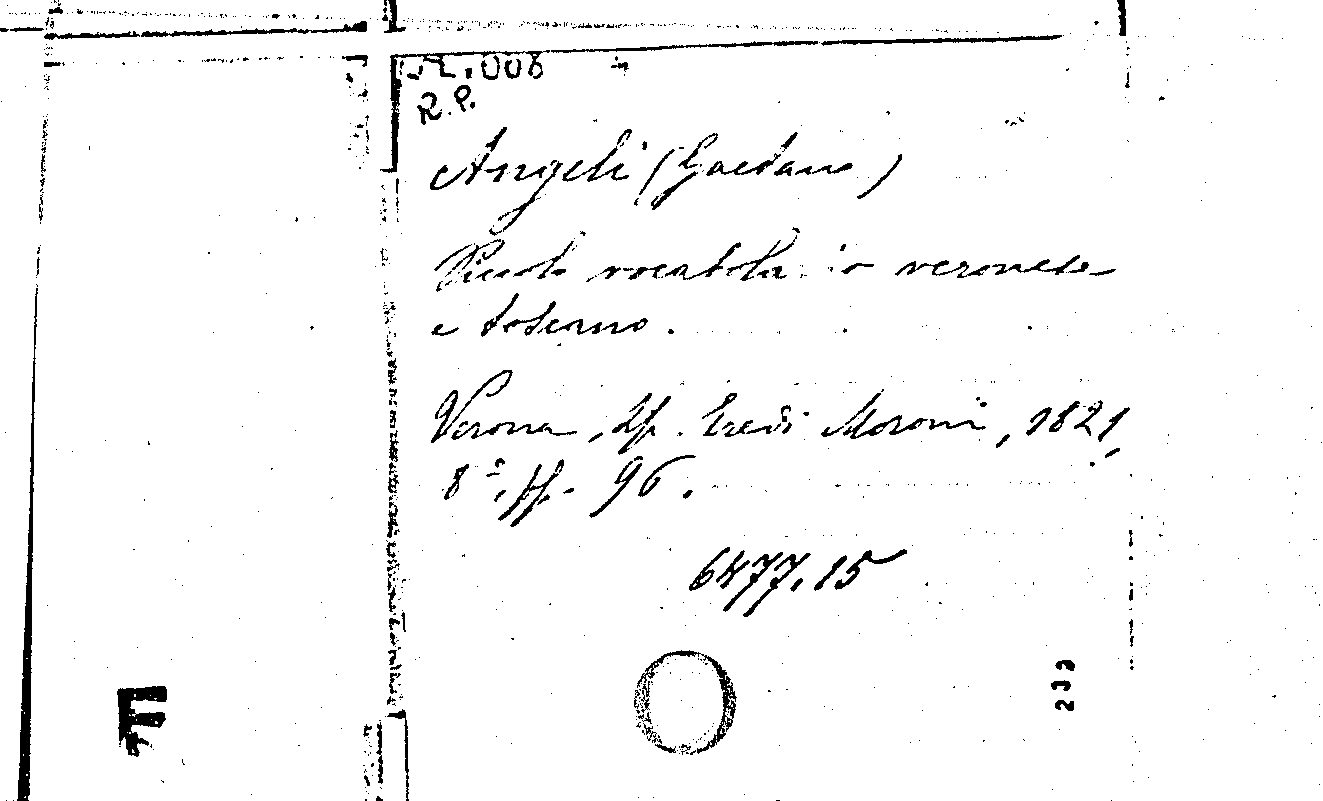 R.P.
Angeli (Gaetano)
Piccolo vocabolario veronese
e toscano.
Verona, Tip. Eredi Moroni, 1821,
8º, pp. 96.
6477.15
233